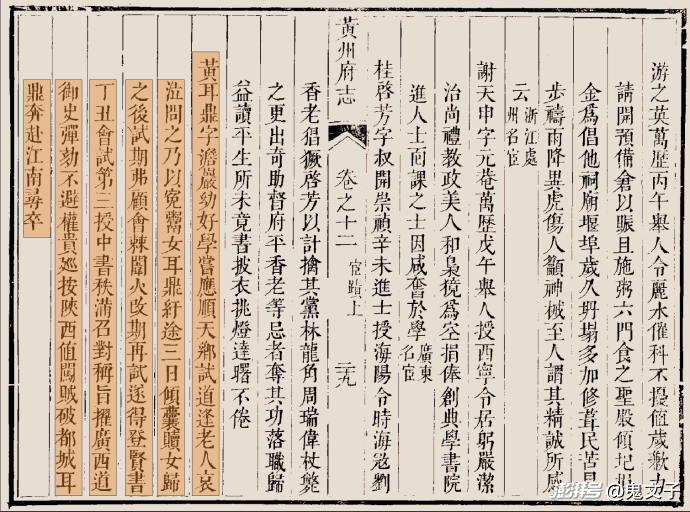 游之英萬歷丙午舉人令麗水催科不擾值歲歉力
請開預備倉以賑且施粥六門食之聖殿傾圮捐
金爲倡他祠廟堰埠歲久坍塌多加修葺民苦旱
步禱雨降異虎傷人籲神械至人謂其精誠所感
云浙江處州名宦
謝天申字元菴萬歷戊午舉人授西寧令居躬嚴潔
治尚禮教政美人和梟獍爲空捐俸創典學書院
進人士而課之士因咸奮於學廣東名宦
桂啓芳字叔開崇禎辛未進士授海陽令時海寇劉
黃州府志 卷之十二 宦蹟上 三九
香老猖獗啓芳以計擒其黨林龍角周瑞偉杖斃
之更出奇助督府平香老等忌者奪其功落職歸
益讀平生所未竟書披衣挑燈達曙不倦
黃耳鼎字澹嚴幼好學嘗應順天鄉試道逢老人哀
泣問之乃以寃鬻女耳鼎紆途三日傾囊贖女歸
之後試期弗顧會棘闈火改期再試遂得登賢書
丁丑會試第三授中書秩滿召對稱旨擢廣西道
御史彈劾不避權貴廵按陝西值闖賊破都城耳
鼎奔赴江南尋卒
澎湃号 @鬼丈子